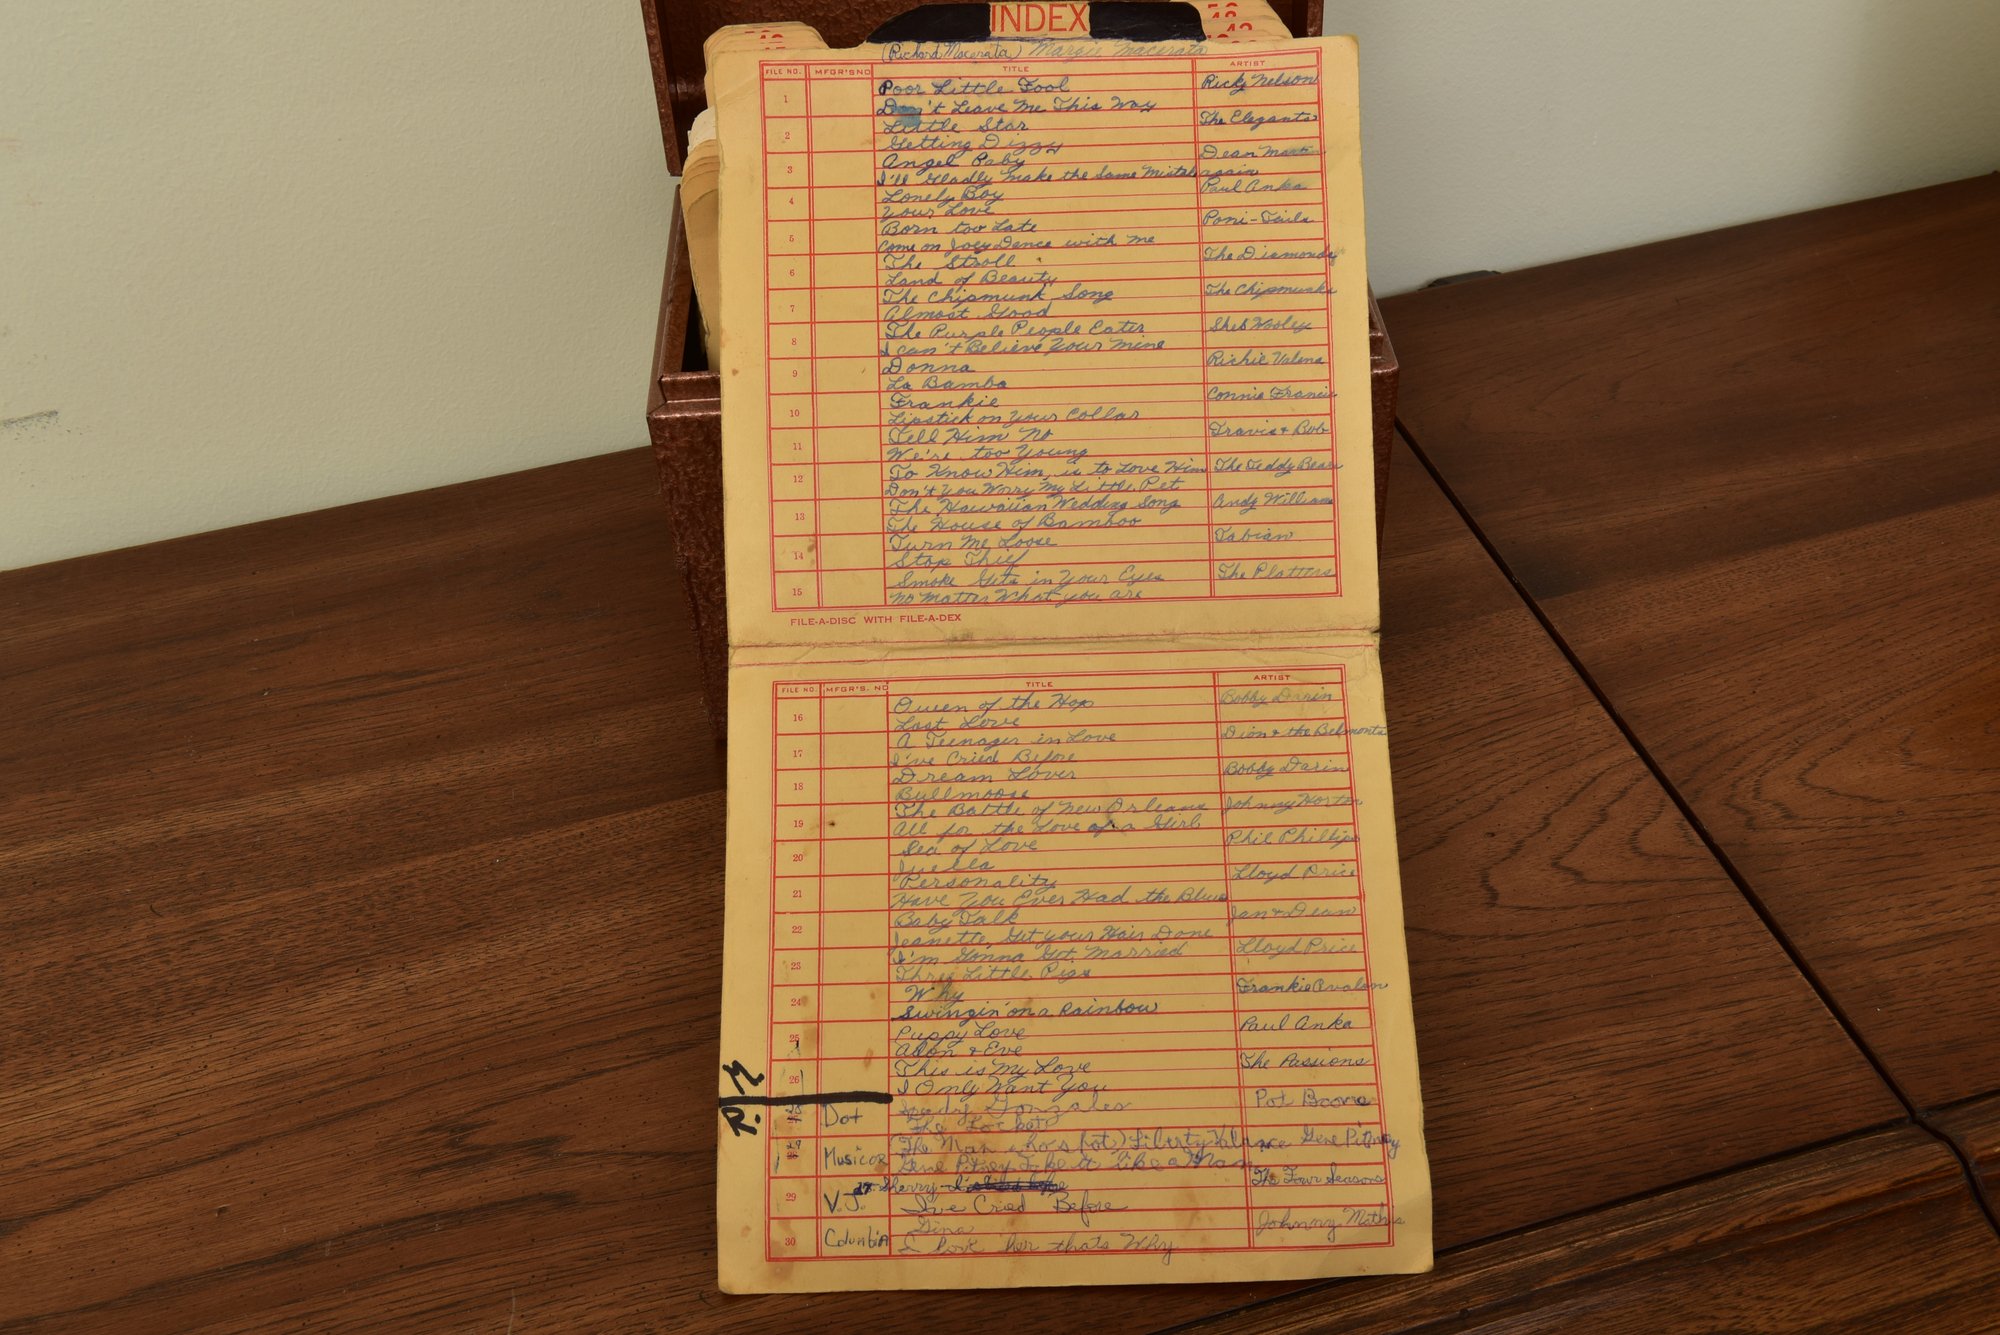 INDEX
(Richard Macerata) Margie Macerata
FILE NO. MFGR'S NO TITLE ARTIST
1 Poor Little Fool Ricky Nelson
Don't Leave Me This Way
2 Little Star The Elegants
Getting Dizzy
3 Angel Baby Dean Martin
I'll Gladly Make the Same Mistake again
4 Lonely Boy Paul Anka
Your Love
5 Born too Late Poni-Tails
Come on Joey Dance with me
6 The Stroll The Diamonds
Land of Beauty
7 The Chipmunk Song The Chipmunks
Almost Good
8 The Purple People Eater Sheb Wooley
I can't Believe Your mine
9 Donna Richie Valens
La Bamba
10 Frankie Connie Francis
Lipstick on Your Collar
11 Tell Him No Travis + Bob
We're too Young
12 To Know Him, is to Love Him The Teddy Bears
Don't You Worry My Little Pet
13 The Hawaiian Wedding Song Andy Williams
The House of Bamboo
14 Turn Me Loose Fabian
Stop Thief
15 Smoke Gets in Your Eyes The Platters
No Matter What you are
FILE-A-DISC WITH FILE-A-DEX
FILE NO. MFGR'S. NO TITLE ARTIST
16 Queen of the Hop Bobby Darin
Lost Love
17 A Teenager in Love Dion + the Belmonts
I've Cried Before
18 Dream Lover Bobby Darin
Bullmoose
19 The Battle of New Orleans Johnny Horton
All for the Love of a Girl
20 Sea of Love Phil Phillips
Juella
21 Personality Lloyd Price
Have You Ever Had the Blues
22 Baby Talk Jan + Dean
Jeanette, Get your Hair Done
23 I'm Gonna Get Married Lloyd Price
Three Little Pigs
24 Why Frankie Avalon
Swingin' on a Rainbow
25 Puppy Love Paul Anka
Adon + Eve
26 This is My Love The Passions
I Only Want You
R. M
28 Dot Speedy Gonzales Pat Boone
The Locket
29 Musicor (The Man who shot) Liberty Valance Gene Pitney
Gene Pitney Take it like a Man
29 V.J. 27 Sherry The Four Seasons
I've Cried Before
30 Columbia Gina Johnny Mathis
I love her thats Why